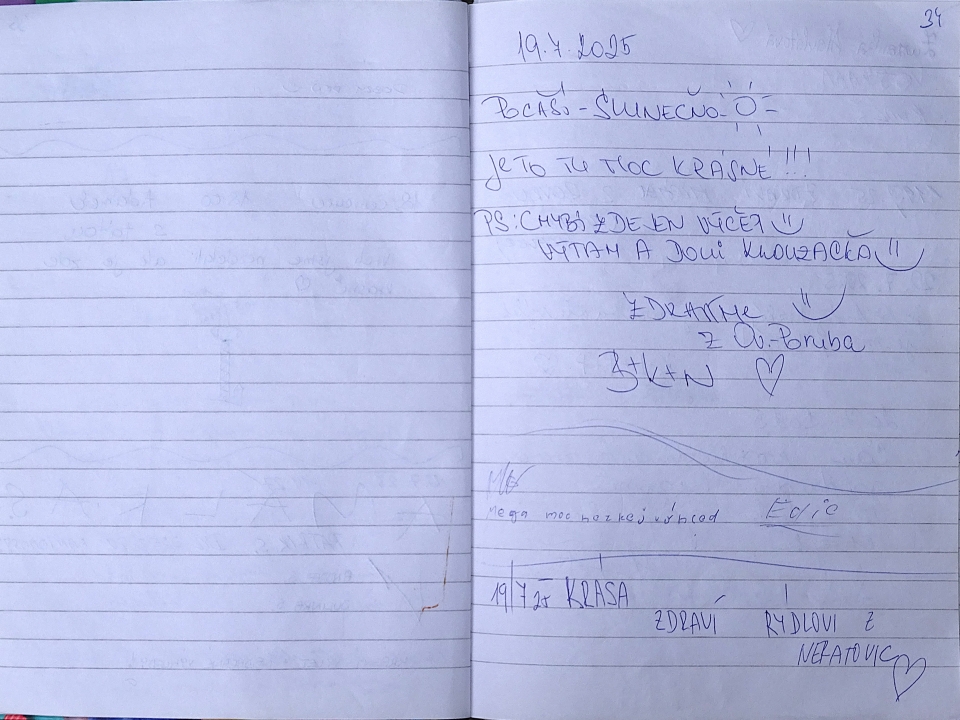 34
19.7.2025
POČASÍ - SLUNEČNO -
JE TO TU MOC KRÁSNÉ !!!
PS: CHYBÍ ZDE JEN VÝČEP
VÝTAH A DOLŮ KLOUZAČKA
ZDRAVÍME
Z Ov.-Poruba
B+K+N
Mega moc hezkej výhled Edie
19/7 25 KRÁSA
ZDRAVÍ RÝDLOVI Z
NERATOVIC